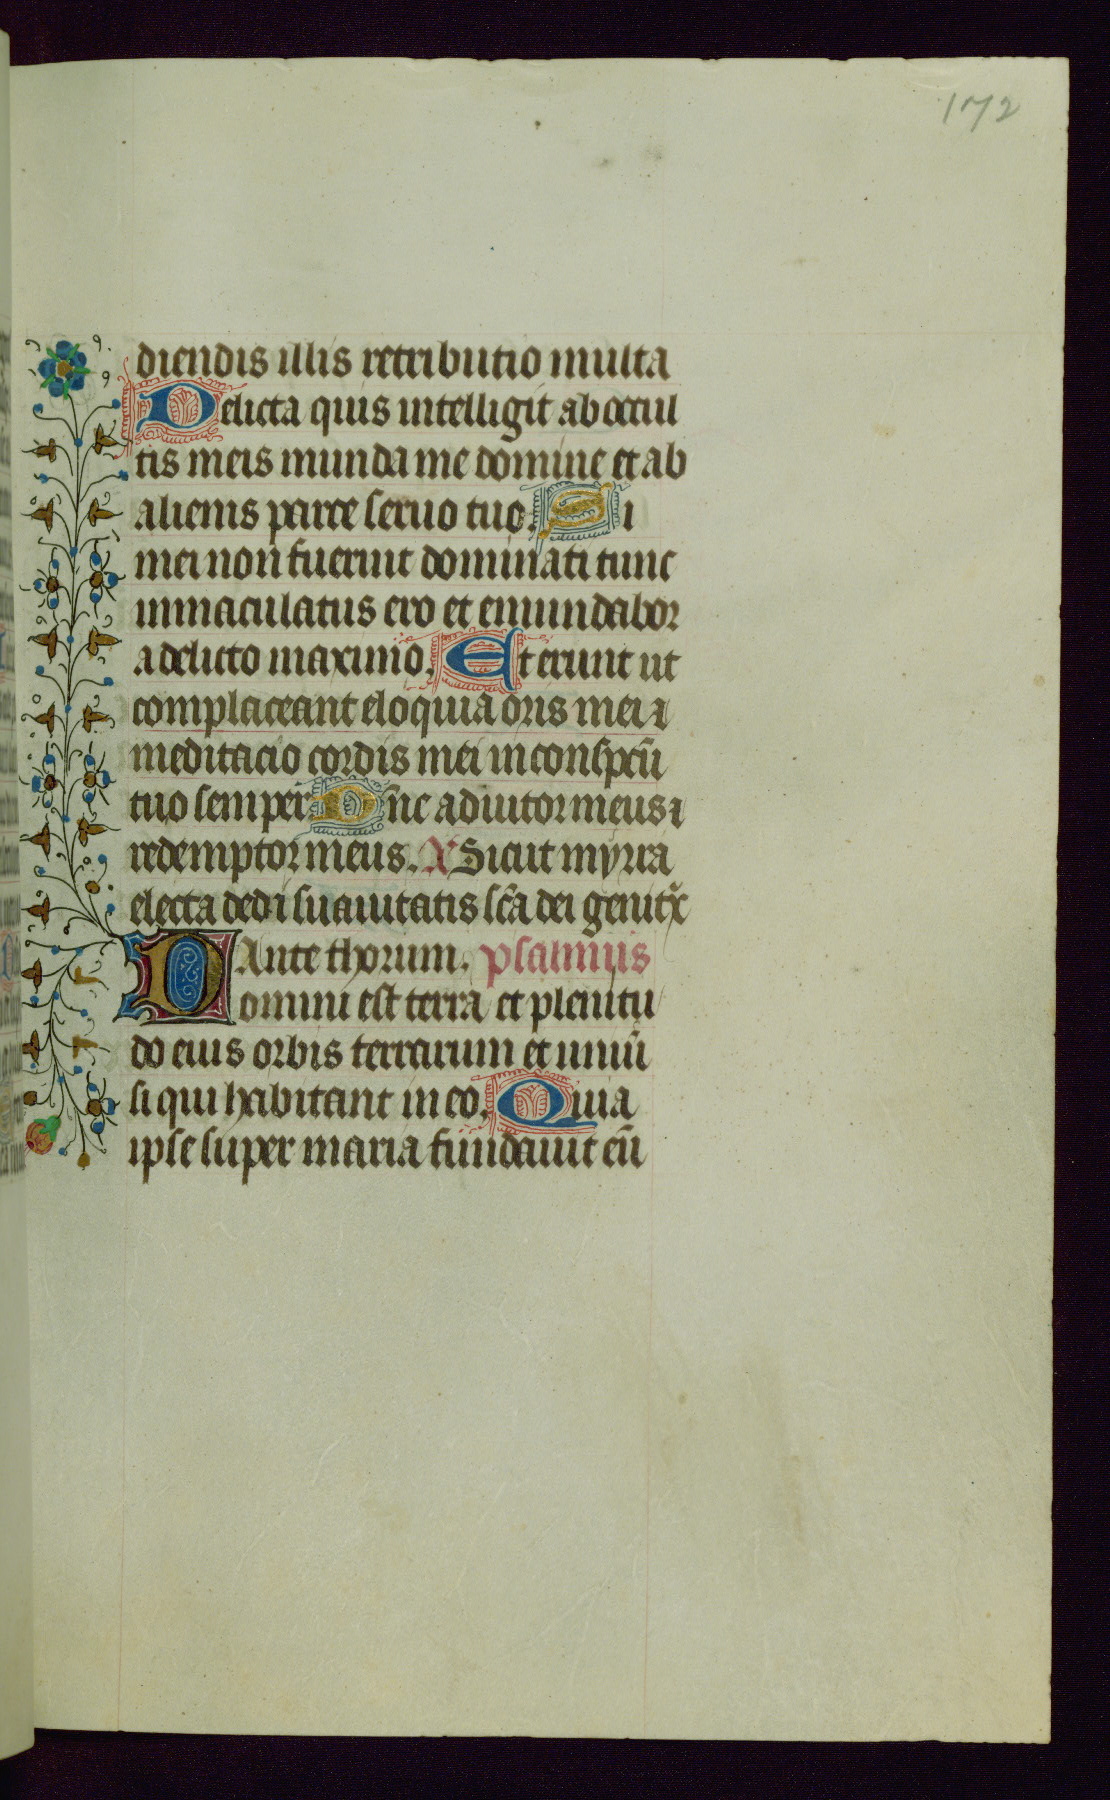 172
diendis illis retributio multa
Delicta quis intelligit ab occul
tis meis munda me domine et ab
alienis parce seruo tuo. Si
mei non fuerint dominati tunc
inmaculatus ero et emundabor
a delicto maximo. Et erunt ut
complaceant eloquia oris mei ⁊
meditacio cordis mei in conspcũ
tuo semper Dñe adiutor meus ⁊
redemptor meus. A Sicut myrra
electa dedi suauitatis sc̃a dei genitx̃
Ante thorum. psalmus
Domini est terra et plenitu
do eius orbis terrarum et uniũ
si qui habitant in eo. Quia
ipse super maria fundauit eũ